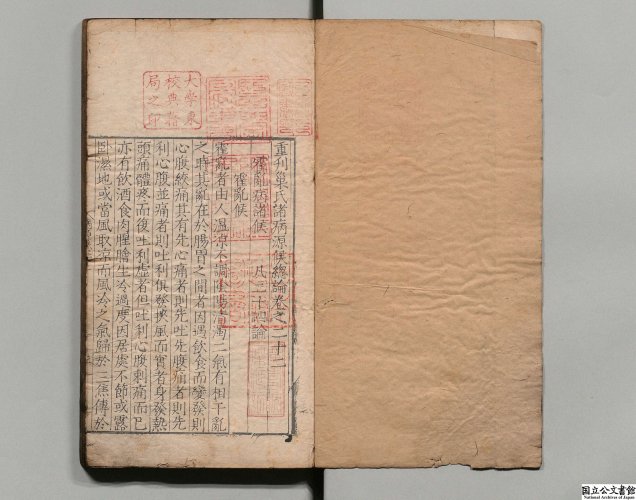 重刊巢氏諸病源候總論卷之二十二
霍亂病諸候　凡二十四論
霍亂候
霍亂者由人溫涼不調陰陽清濁二氣有相干亂
之時其亂在於腸胃之間者因遇飲食而變發則
心腹絞痛其有先心痛者則先吐先腹痛者則先
利心腹並痛者則吐利俱發挾風而實者身發熱
頭痛體疼而復吐利虛者但吐利心腹刺痛而已
亦有飲酒食肉腥膾生冷過度因居處不節或露
臥濕地或當風取涼而風冷之氣歸於三焦傳於
大學東
校典籍
局之印
国立公文書館
National Archives of Japan